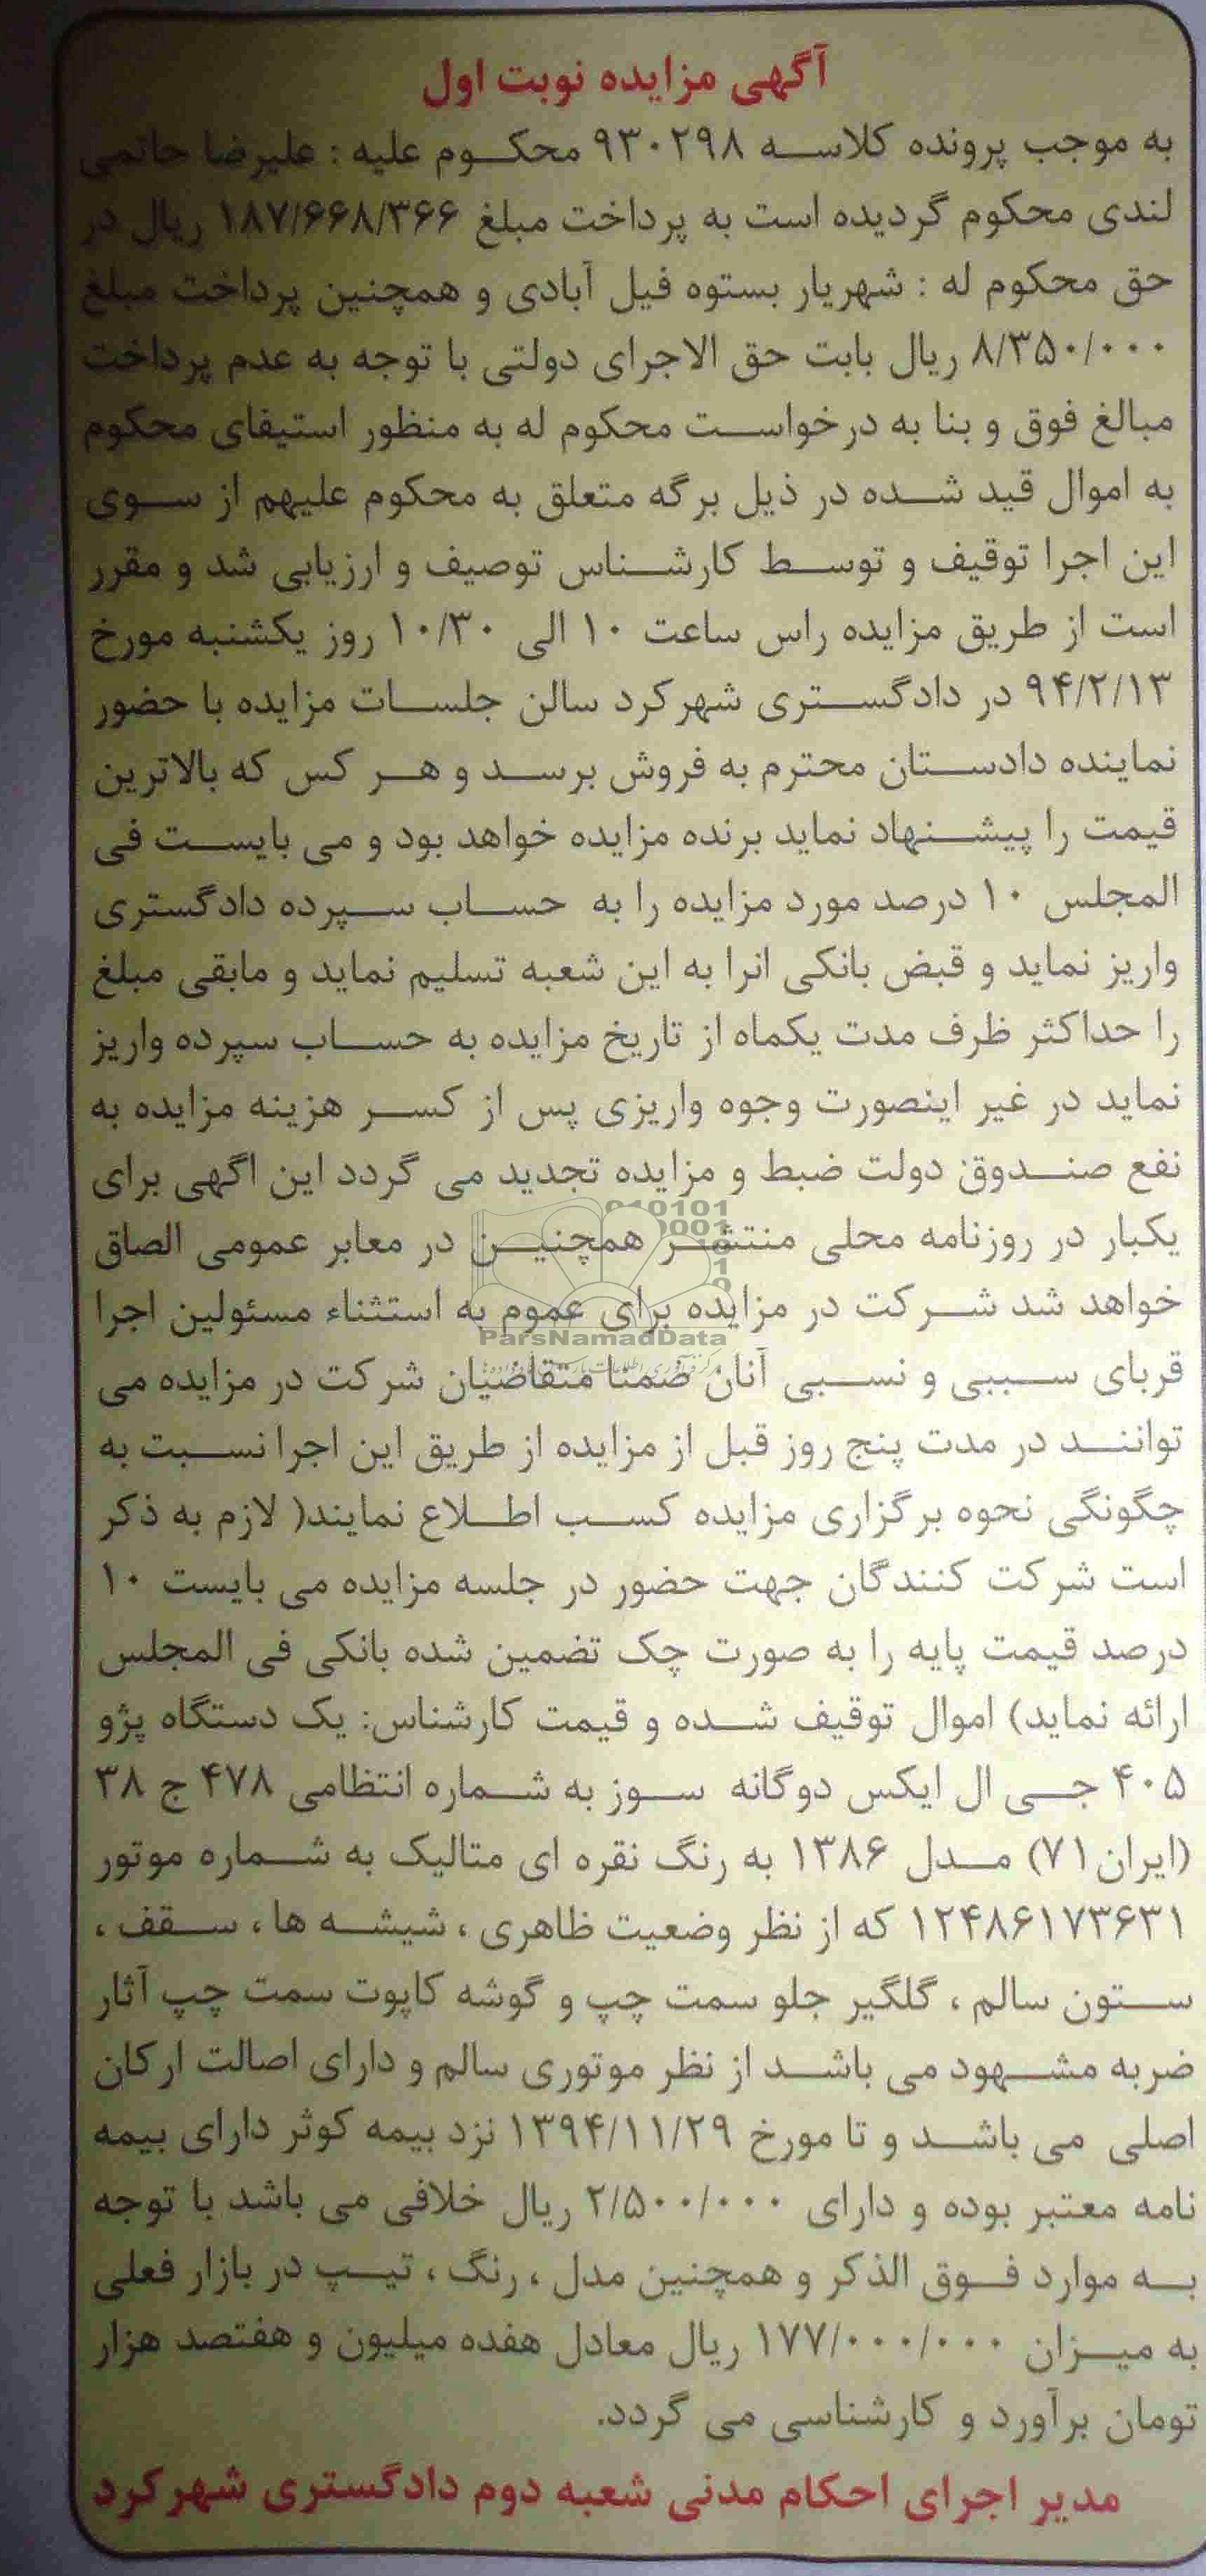 آگهی مزایده نوبت اول
به موجب پرونده کلاسه ۹۳۰۲۹۸ محکوم علیه : علیرضا حاتمی
لندی محکوم گردیده است به پرداخت مبلغ ۱۸۷/۶۶۸/۳۶۶ ریال در
حق محکوم له : شهریار بستوه فیل آبادی و همچنین پرداخت مبلغ
۸/۳۵۰/۰۰۰ ریال بابت حق الاجرای دولتی با توجه به عدم پرداخت
مبالغ فوق و بنا به درخواست محکوم له به منظور استیفای محکوم
به اموال قید شده در ذیل برگه متعلق به محکوم علیهم از سوی
این اجرا توقیف و توسط کارشناس توصیف و ارزیابی شد و مقرر
است از طریق مزایده راس ساعت ۱۰ الی ۱۰/۳۰ روز یکشنبه مورخ
۹۴/۲/۱۳ در دادگستری شهرکرد سالن جلسات مزایده با حضور
نماینده دادستان محترم به فروش برسد و هر کس که بالاترین
قیمت را پیشنهاد نماید برنده مزایده خواهد بود و می بایست فی
المجلس ۱۰ درصد مورد مزایده را به حساب سپرده دادگستری
واریز نماید و قبض بانکی انرا به این شعبه تسلیم نماید و مابقی مبلغ
را حداکثر ظرف مدت یکماه از تاریخ مزایده به حساب سپرده واریز
نماید در غیر اینصورت وجوه واریزی پس از کسر هزینه مزایده به
نفع صندوق دولت ضبط و مزایده تجدید می گردد این اگهی برای
یکبار در روزنامه محلی منتشر همچنین در معابر عمومی الصاق
خواهد شد شرکت در مزایده برای عموم به استثناء مسئولین اجرا
قربای سببی و نسبی آنان ضمنا متقاضیان شرکت در مزایده می
توانند در مدت پنج روز قبل از مزایده از طریق این اجرا نسبت به
چگونگی نحوه برگزاری مزایده کسب اطلاع نمایند( لازم به ذکر
است شرکت کنندگان جهت حضور در جلسه مزایده می بایست ۱۰
درصد قیمت پایه را به صورت چک تضمین شده بانکی فی المجلس
ارائه نماید) اموال توقیف شده و قیمت کارشناس: یک دستگاه پژو
۴۰۵ جی ال ایکس دوگانه سوز به شماره انتظامی ۴۷۸ ج ۳۸
(ایران۷۱) مدل ۱۳۸۶ به رنگ نقره ای متالیک به شماره موتور
۱۲۴۸۶۱۷۳۶۳۱ که از نظر وضعیت ظاهری ، شیشه ها ، سقف ،
ستون سالم ، گلگیر جلو سمت چپ و گوشه کاپوت سمت چپ آثار
ضربه مشهود می باشد از نظر موتوری سالم و دارای اصالت ارکان
اصلی می باشد و تا مورخ ۱۳۹۴/۱۱/۲۹ نزد بیمه کوثر دارای بیمه
نامه معتبر بوده و دارای ۲/۵۰۰/۰۰۰ ریال خلافی می باشد با توجه
به موارد فوق الذکر و همچنین مدل ، رنگ ، تیپ در بازار فعلی
به میزان ۱۷۷/۰۰۰/۰۰۰ ریال معادل هفده میلیون و هفتصد هزار
تومان برآورد و کارشناسی می گردد.
مدیر اجرای احکام مدنی شعبه دوم دادگستری شهرکرد
ParsNamadData